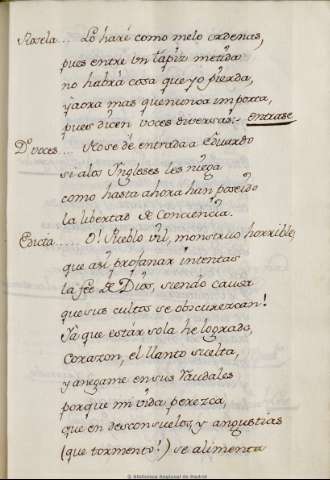 Marcela... Lo haré como melo ordenas,
pues entre un tapiz metida
no habrá cosa que yo pierda,
y aora mas que nunca importa,
pues dicen voces diversas:- entrase
Ds. voces... No se dé entrada a Eduardo
si alos Yngleses les niega
como hasta ahora han poseido
la libertad de Conciencia.
Edicta..... O! Pueblo vil, monstruo horrible,
que asi profanar intentas
la feé de Dios, siendo causa
que sus cultos se obscurezcan!
Ya que estár sola he logrado,
Corazon, el llanto suelta,
y anegame en sus raudales
porque mi vida perezca,
que en desconsuelos, y angustias
(que tormento!) se alimenta
Biblioteca Regional de Madrid